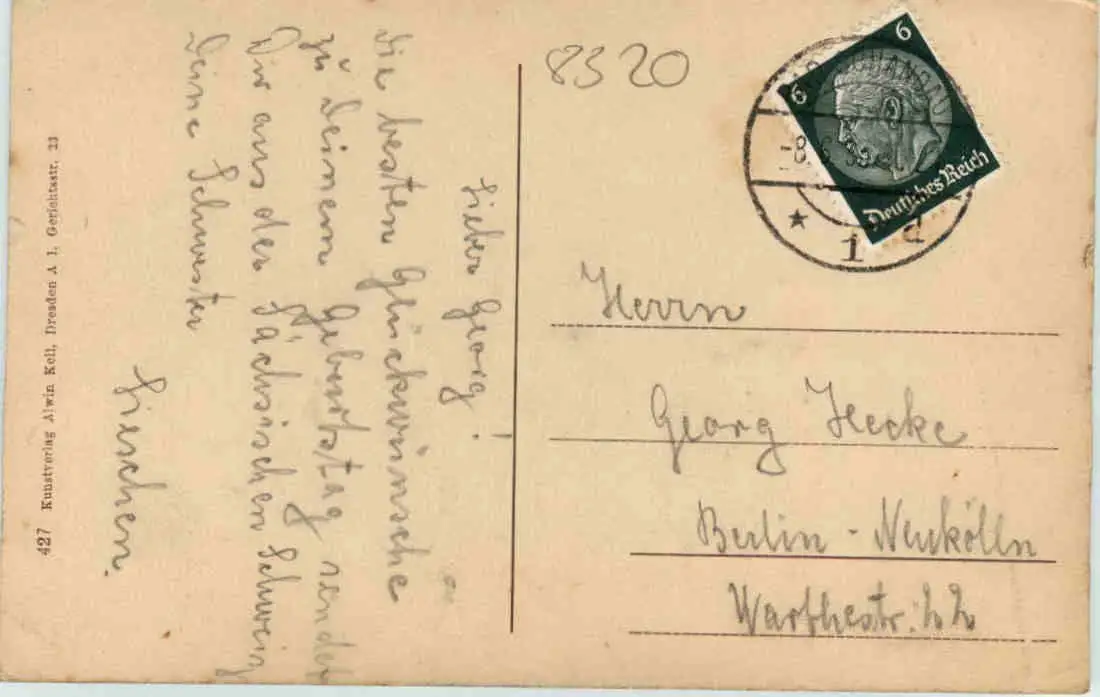 Lieber Georg!
Die besten Glückwünsche
zu Deinem Geburtstag sendet
Dir aus der Sächsischen Schweiz
Deine Schwester
Lieschen.
427 Kunstverlag Alwin Keil, Dresden A 1, Gerichtsstr. 23
8320
6
6
Deutsches Reich
SCHANDAU
* 1 d
Herrn
Georg Hecke
Berlin-Neukölln
Warthestr. 22